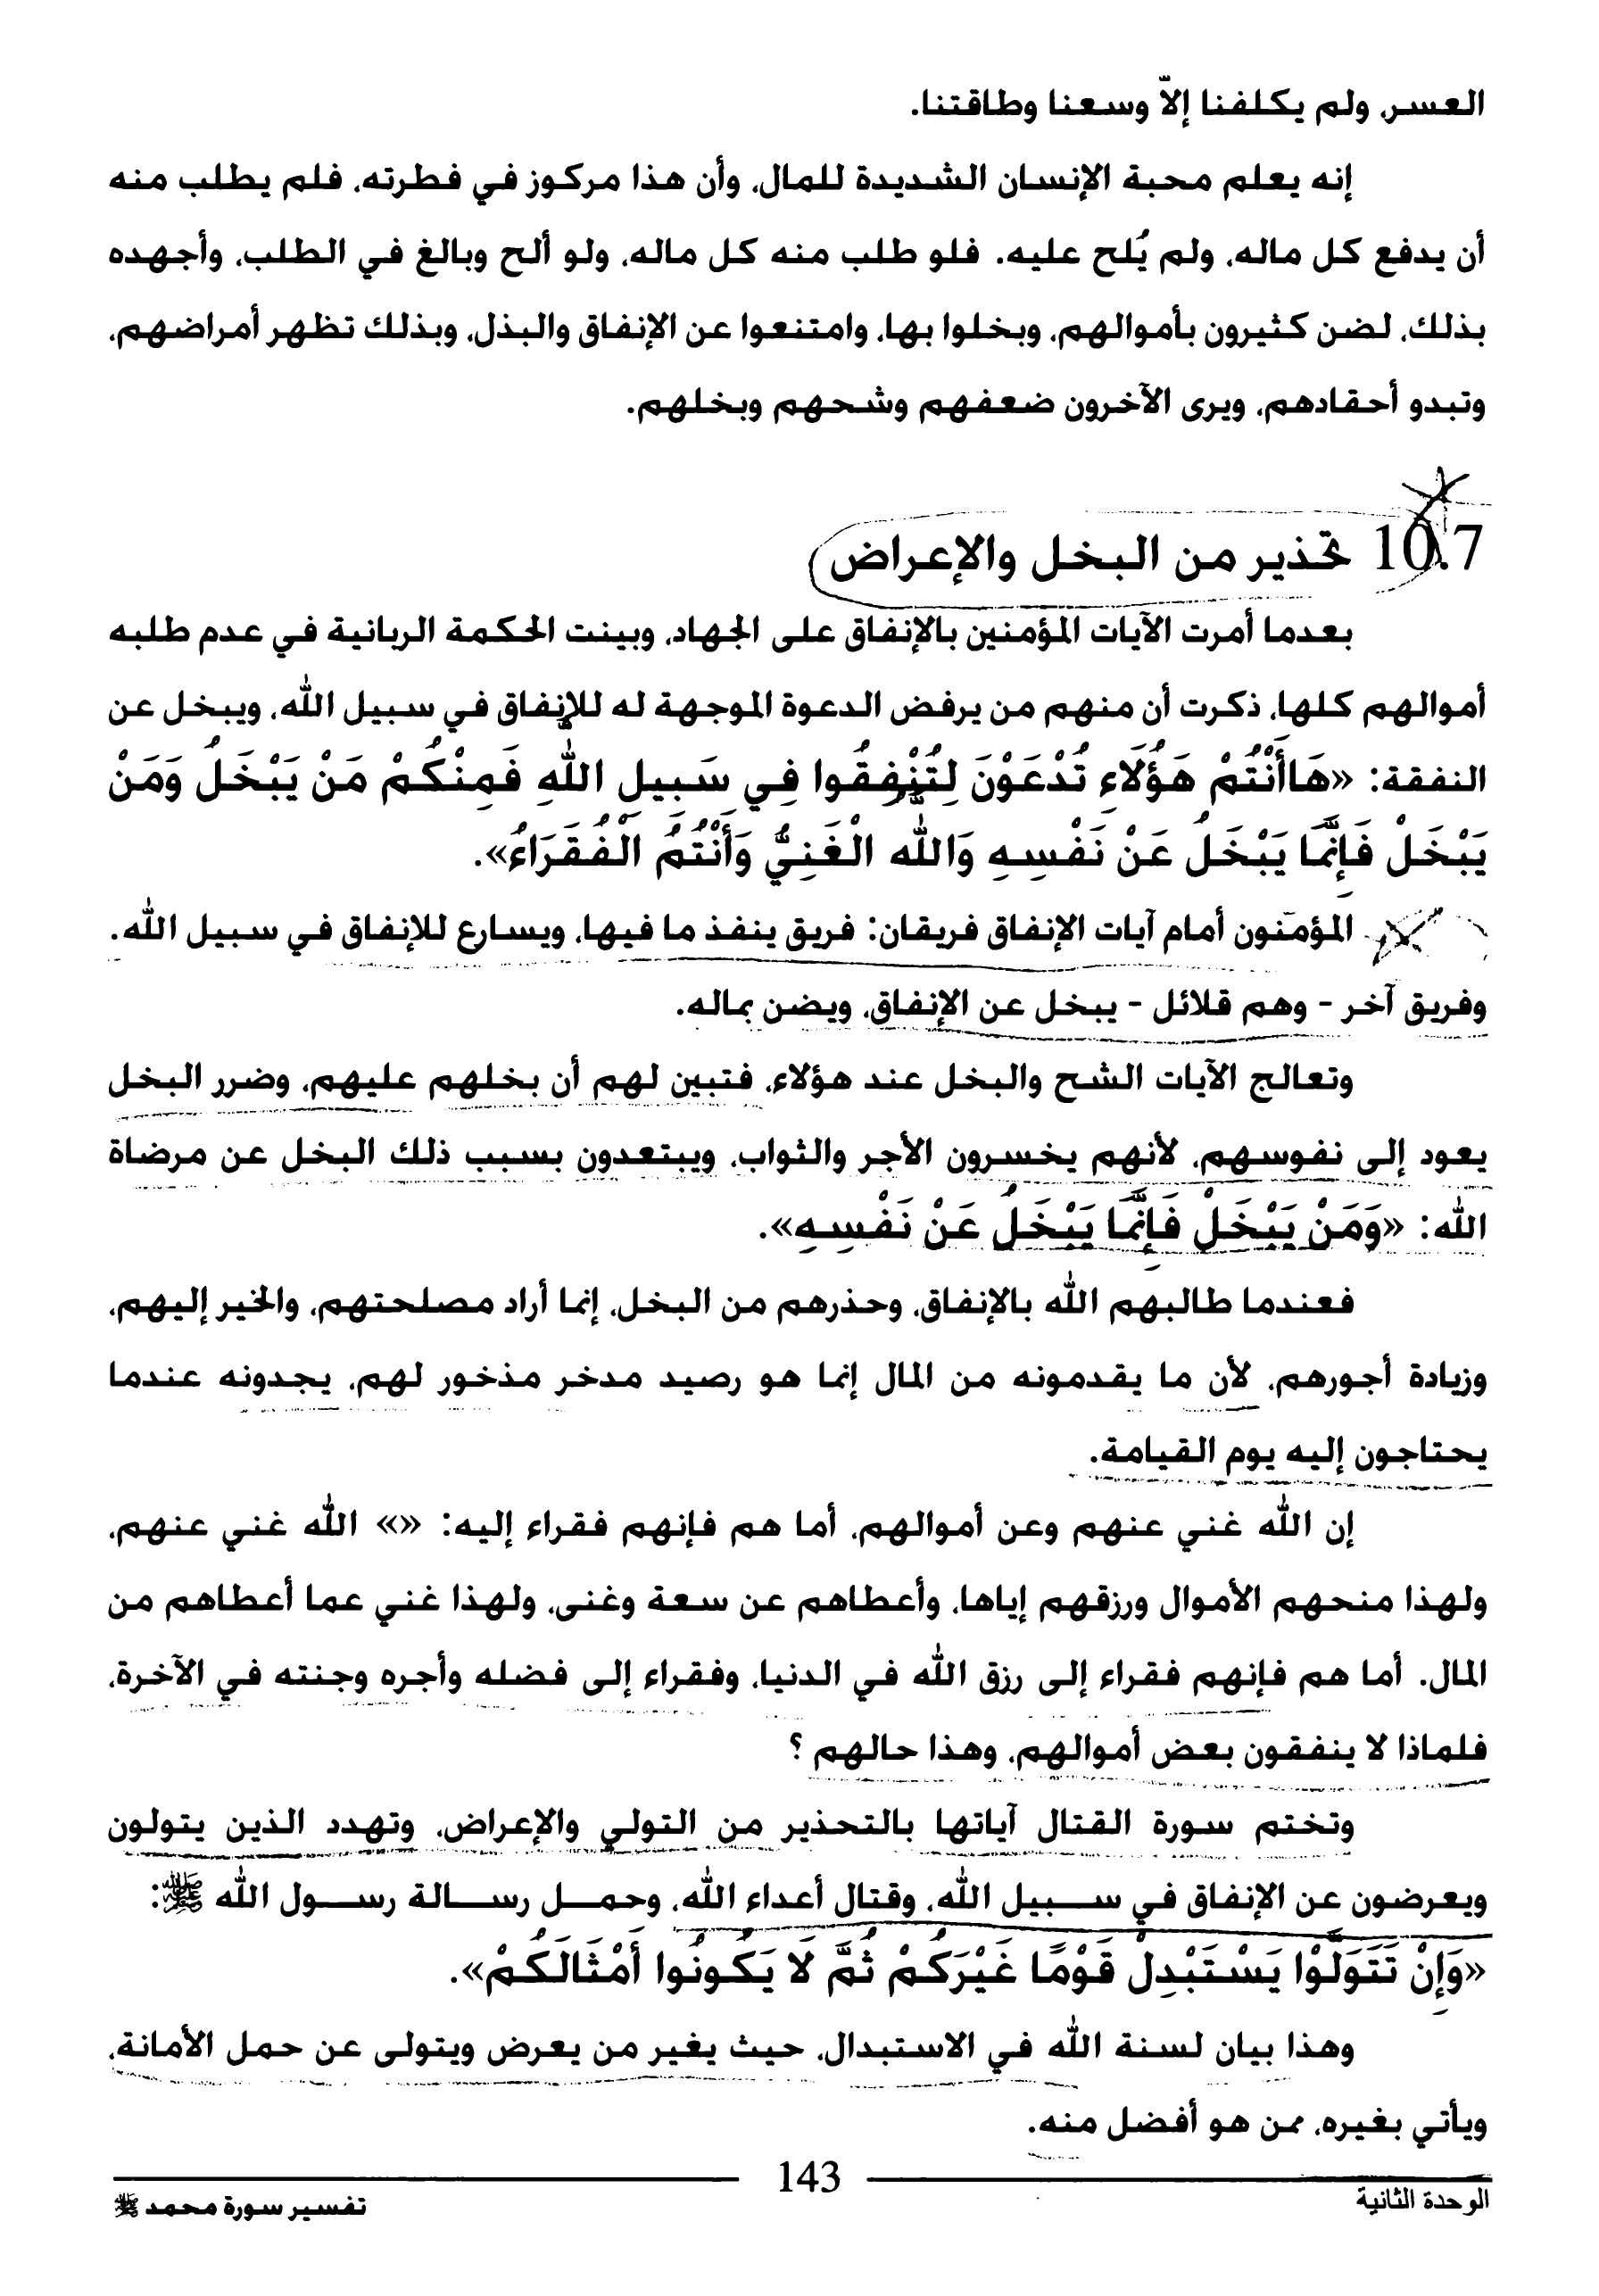 العسر، ولم يكلفنا إلاّ وسعنا وطاقتنا.
إنه يعلم محبة الإنسان الشديدة للمال، وأن هذا مركوز في فطرته، فلم يطلب منه
أن يدفع كل ماله، ولم يُلح عليه. فلو طلب منه كل ماله، ولو ألح وبالغ في الطلب، وأجهده
بذلك، لضن كثيرون بأموالهم، وبخلوا بها، وامتنعوا عن الإنفاق والبذل، وبذلك تظهر أمراضهم،
وتبدو أحقادهم، ويرى الآخرون ضعفهم وشحهم وبخلهم.
10.7 تحذير من البخل والإعراض
بعدما أمرت الآيات المؤمنين بالإنفاق على الجهاد، وبينت الحكمة الربانية في عدم طلبه
أموالهم كلها، ذكرت أن منهم من يرفض الدعوة الموجهة له للإنفاق في سبيل الله، ويبخل عن
النفقة: «هَاأَنْتُمْ هَؤُلَاءِ تُدْعَوْنَ لِتُنْفِقُوا فِي سَبِيلِ اللهِ فَمِنْكُمْ مَنْ يَبْخَلُ وَمَنْ
يَبْخَلْ فَإِنَّمَا يَبْخَلُ عَنْ نَفْسِهِ وَالله الْغَنِيُّ وَأَنْتُمُ الْفُقَرَاءُ».
المؤمنون أمام آيات الإنفاق فريقان: فريق ينفذ ما فيها، ويسارع للإنفاق في سبيل الله.
وفريق آخر - وهم قلائل - يبخل عن الإنفاق، ويضن بماله.
وتعالج الآيات الشح والبخل عند هؤلاء، فتبين لهم أن بخلهم عليهم، وضرر البخل
يعود إلى نفوسهم، لأنهم يخسرون الأجر والثواب، ويبتعدون بسبب ذلك البخل عن مرضاة
الله: «وَمَنْ يَبْخَلْ فَإِنَّمَا يَبْخَلُ عَنْ نَفْسِهِ».
فعندما طالبهم الله بالإنفاق، وحذرهم من البخل، إنما أراد مصلحتهم، والخير إليهم،
وزيادة أجورهم، لأن ما يقدمونه من المال إنما هو رصيد مدخر مذخور لهم، يجدونه عندما
يحتاجون إليه يوم القيامة.
إن الله غني عنهم وعن أموالهم، أما هم فإنهم فقراء إليه: «» الله غني عنهم،
ولهذا منحهم الأموال ورزقهم إياها، وأعطاهم عن سعة وغنى، ولهذا غني عما أعطاهم من
المال. أما هم فإنهم فقراء إلى رزق الله في الدنيا، وفقراء إلى فضله وأجره وجنته في الآخرة،
فلماذا لا ينفقون بعض أموالهم، وهذا حالهم ؟
وتختم سورة القتال آياتها بالتحذير من التولي والإعراض، وتهدد الذين يتولون
ويعرضون عن الإنفاق في سبيل الله، وقتال أعداء الله، وحمل رسالة رسول الله ﷺ:
«وَإِنْ تَتَوَلَّوْا يَسْتَبْدِلْ قَوْمًا غَيْرَكُمْ ثُمَّ لَا يَكُونُوا أَمْثَالَكُمْ».
وهذا بيان لسنة الله في الاستبدال، حيث يغير من يعرض ويتولى عن حمل الأمانة،
ويأتي بغيره، ممن هو أفضل منه.
143
الوحدة الثانية
تفسير سورة محمد ﷺ